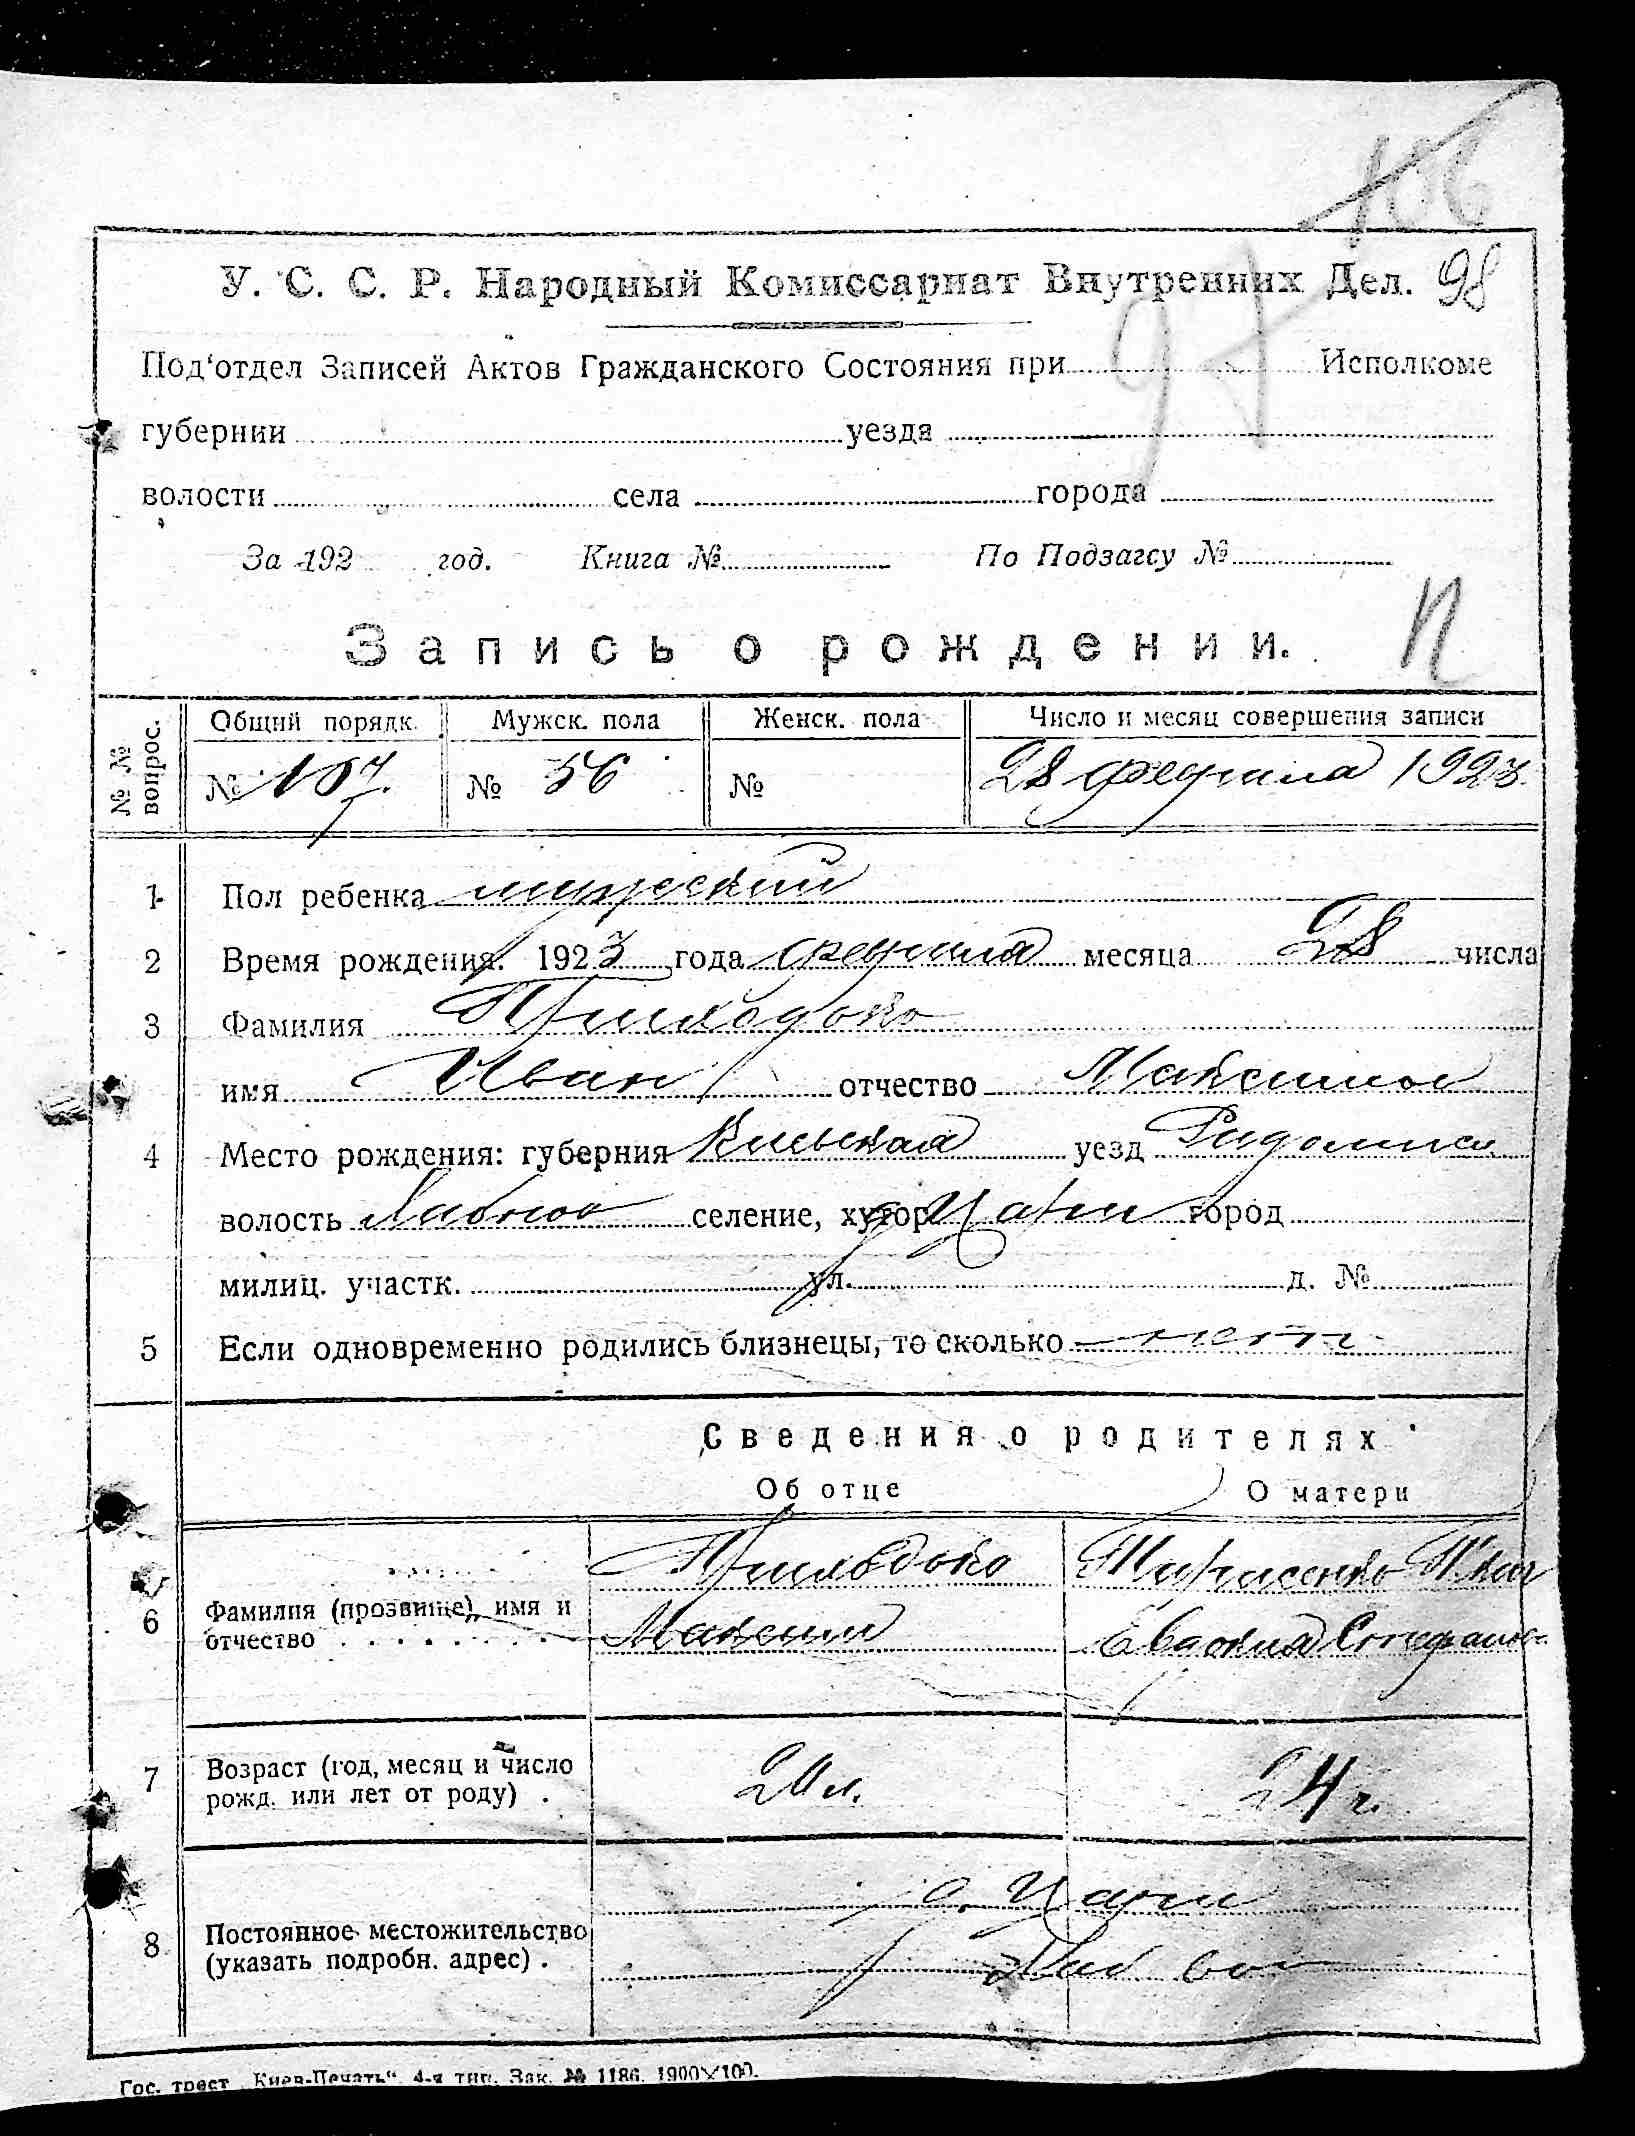 106
У. С. С. Р. Народный Комиссариат Внутренних Дел. 98
Под'отдел Записей Актов Гражданского Состояния при Исполкоме
губернии уезда
волости села города
За 192 год. Книга № По Подзагсу №
Запись о рождении. П
№ № вопрос. Общий порядк. Мужск. пола Женск. пола Число и месяц совершения записи
№ 107. № 56 № 28 февраля 1923.
1 Пол ребенка мужский
2 Время рождения: 1923 года февраля месяца 28 числа
3 Фамилия Приходько
имя Иван отчество Максимов
4 Место рождения: губерния Киевская уезд Радомысл.
волость селение, хутор город
милиц. участк. ул. д. №
5 Если одновременно родились близнецы, то сколько нет
Сведения о родителях
Об отце О матери
Приходько
6 Фамилия (прозвище), имя и отчество Максим Евдокия
7 Возраст (год, месяц и число рожд. или лет от роду) . 24 г.
8 Постоянное местожительство (указать подробн. адрес) .
Гос. трест „Киев-Печать“ 4-я тип. Зак. № 1186. 1900×100.